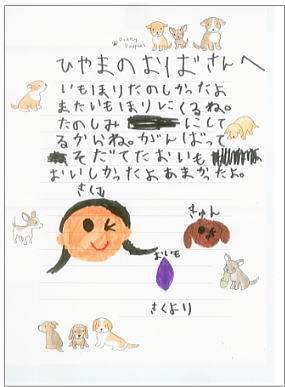 Pretty Puppies
ひやまのおりばさんへ
いもほりたのしかったよ
またいもほりにくるね。
たのしみ にして
るからね。がんばって
そだてたおいも
おいしかったよあまかったよ。
さくら
きゅん
おいも
さくより